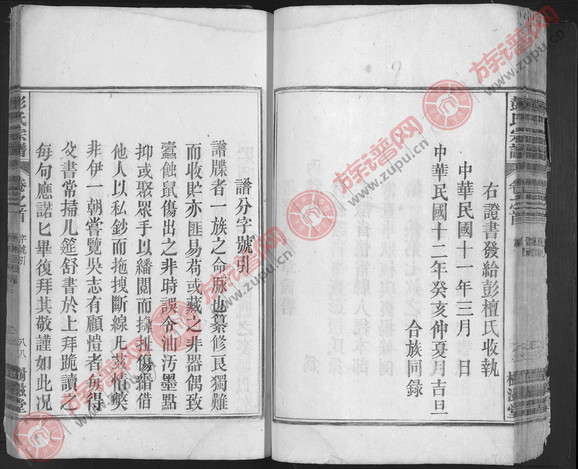 右證書發給彭檀氏收執
中華民國十一年三月　日
中華民國十二年癸亥仲夏月吉旦
合族同錄
彭氏宗譜
卷之首
字號引
八八
譜分字號引
譜牒者一族之命脉也纂修艮獨難
而收貯亦匪易苟或藏之非器偶致
蠹蝕鼠傷出之非時誤令油汚墨點
抑或聚眾手以繙閱而摧扯傷殘借
他人以私鈔而拖拽斷線凡茲情獘
非伊一朝嘗覽吳志有顧愷者每得
父書常掃几筵舒書於上拜跪讀之
每句應諾匕畢復拜其敬謹如此况
族谱网
www.zupu.cn